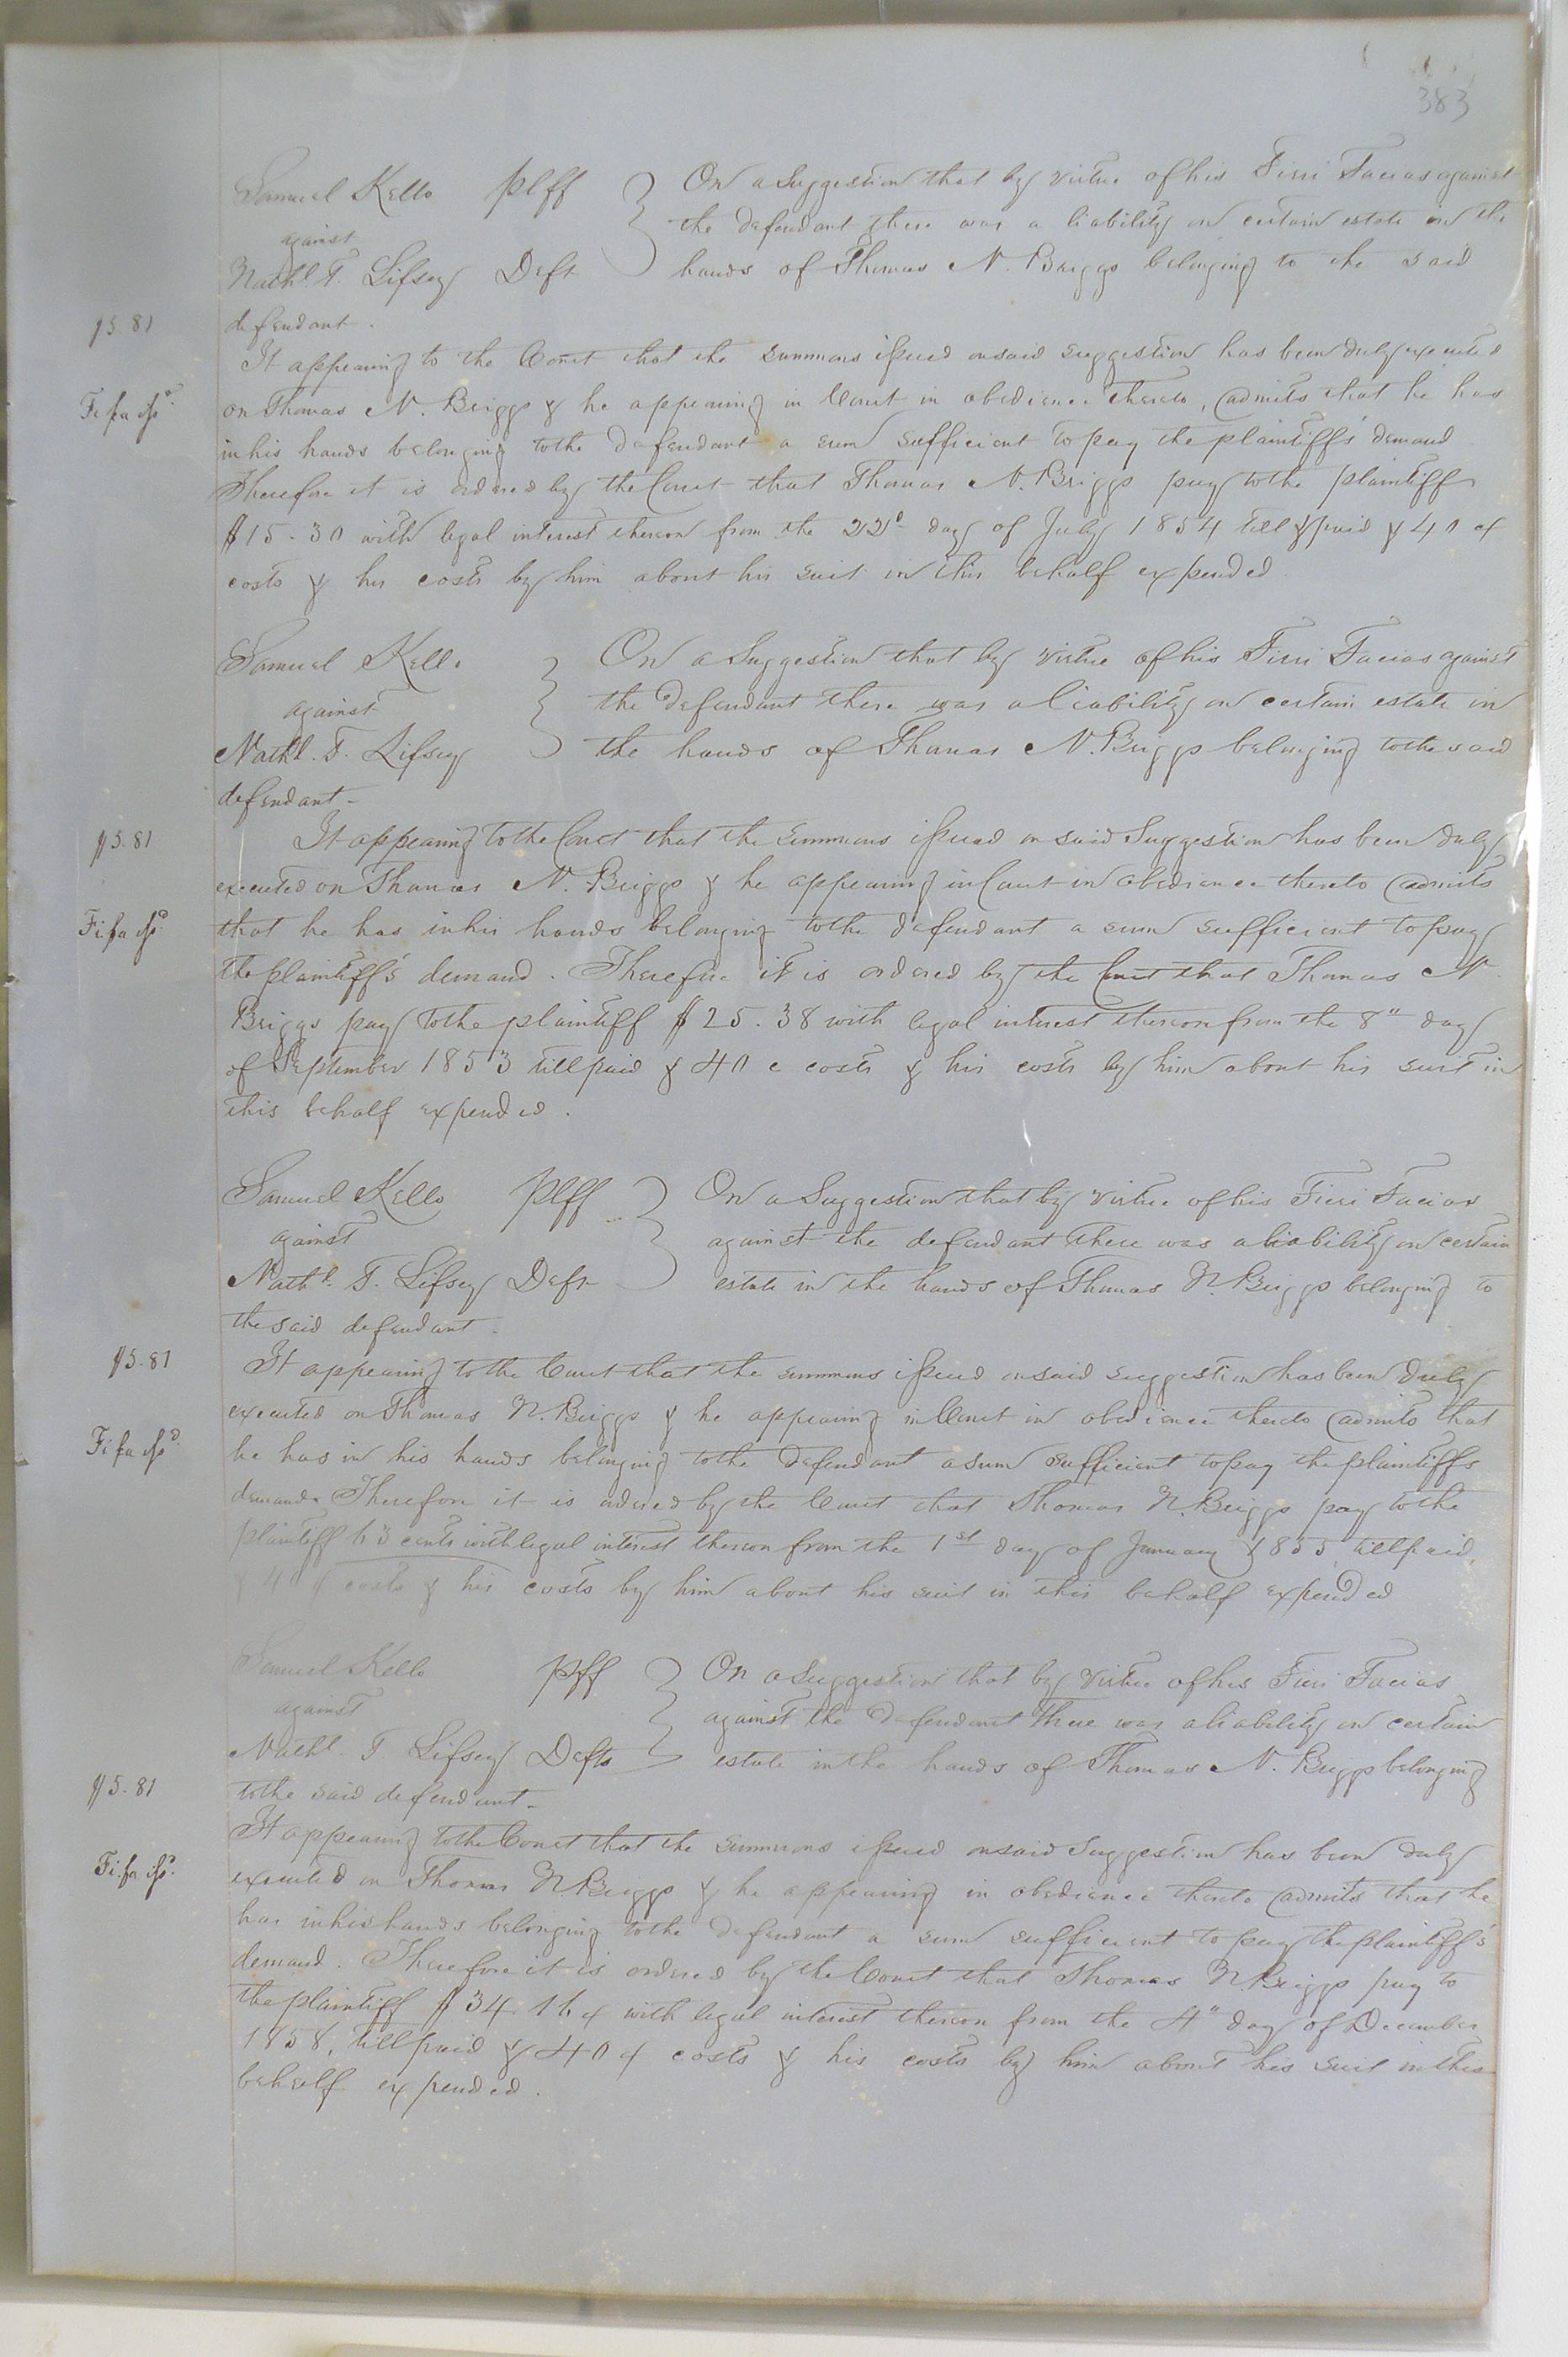 383
Samuel Kello plff } On a Suggestion that by virtue of his Fieri Facias against
against the defendant there was a liability on certain estate in the
Nathl. T. Lifsey Deft hands of Thomas N. Briggs belonging to the said
defendant.
$5.81
It appearing to the Court that the summons issued on said suggestion has been duly executed
Fi fa issd.
on Thomas N. Briggs & he appearing in Court in obedience thereto, admits that he has
in his hands belonging to the defendant a sum sufficient to pay the plaintiff's demand
Therefore it is ordered by the Court that Thomas N. Briggs pay to the plaintiff
$15.30 with legal interest thereon from the 22d day of July 1854 till paid & 40 c
costs & his costs by him about his suit in this behalf expended
Samuel Kello } On a Suggestion that by virtue of his Fieri Facias against
against the defendant there was a liability on certain estate in
Nathl. T. Lifsey the hands of Thomas N. Briggs belonging to the said
defendant -
$5.81
It appearing to the Court that the summons issued on said Suggestion has been duly
executed on Thomas N. Briggs & he appearing in Court in obedience thereto admits
Fi fa issd.
that he has in his hands belonging to the defendant a sum sufficient to pay
the plaintiff's demand. Therefore it is ordered by the Court that Thomas N.
Briggs pay to the plaintiff $25.38 with legal interest thereon from the 8" day
of September 1853 till paid & 40 c costs & his costs by him about his suit in
this behalf expended.
Samuel Kello plff } On a Suggestion that by virtue of his Fieri Facias
against against the defendant there was a liability on certain
Nathl. T. Lifsey Deft estate in the hands of Thomas N. Briggs belonging to
the said defendant.
$5.81
It appearing to the Court that the summons issued on said suggestion has been duly
executed on Thomas N. Briggs & he appearing in Court in obedience thereto admits that
Fi fa issd.
he has in his hands belonging to the defendant a sum sufficient to pay the plaintiffs
demand. Therefore it is ordered by the Court that Thomas N. Briggs pay to the
plaintiff 63 cents with legal interest thereon from the 1st day of January 1855, till paid,
& 40 ¢ costs & his costs by him about his suit in this behalf expended
Samuel Kello plff } On a Suggestion that by virtue of his Fieri Facias
against against the defendant there was a liability on certain
Nathl. T. Lifsey Defts estate in the hands of Thomas N. Briggs belonging
$5.81
to the said defendant -
It appearing to the Court that the summons issued on said Suggestion has been duly
Fi.fa issd.
executed on Thomas N Briggs & he appearing in obedience thereto admits that he
has in his hands belonging to the defendant a sum sufficient to pay the plaintiff's
demand. Therefore it is ordered by the Court that Thomas N. Briggs pay to
the plaintiff $34.16 ¢ with legal interest thereon from the 4" day of December
1858, till paid & 40 ¢ costs & his costs by him about his suit in this
behalf expended.